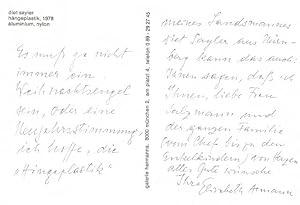 diet sayler
hängeplastik, 1978
aluminium, nylon
Es muß ja nicht
immer ein
Weihnachtsengel
sein, oder eine
Neujahrsstimmung,
ich hoffe, die
„Hängeplastik"
galerie hermanns, 8000 münchen 2, am platzl 4, telefon 0 89 - 29 27 45
meines Landsmannes
diet Sayler aus Nürn-
berg kann das auch:
Ihnen sagen, daß ich
Ihnen, liebe Frau
Salzmann und
der ganzen Familie
(vom Chef bis zu den
Enkelkindern) von Herzen
alles Gute wünsche
Ihre
Elisabeth Axmann